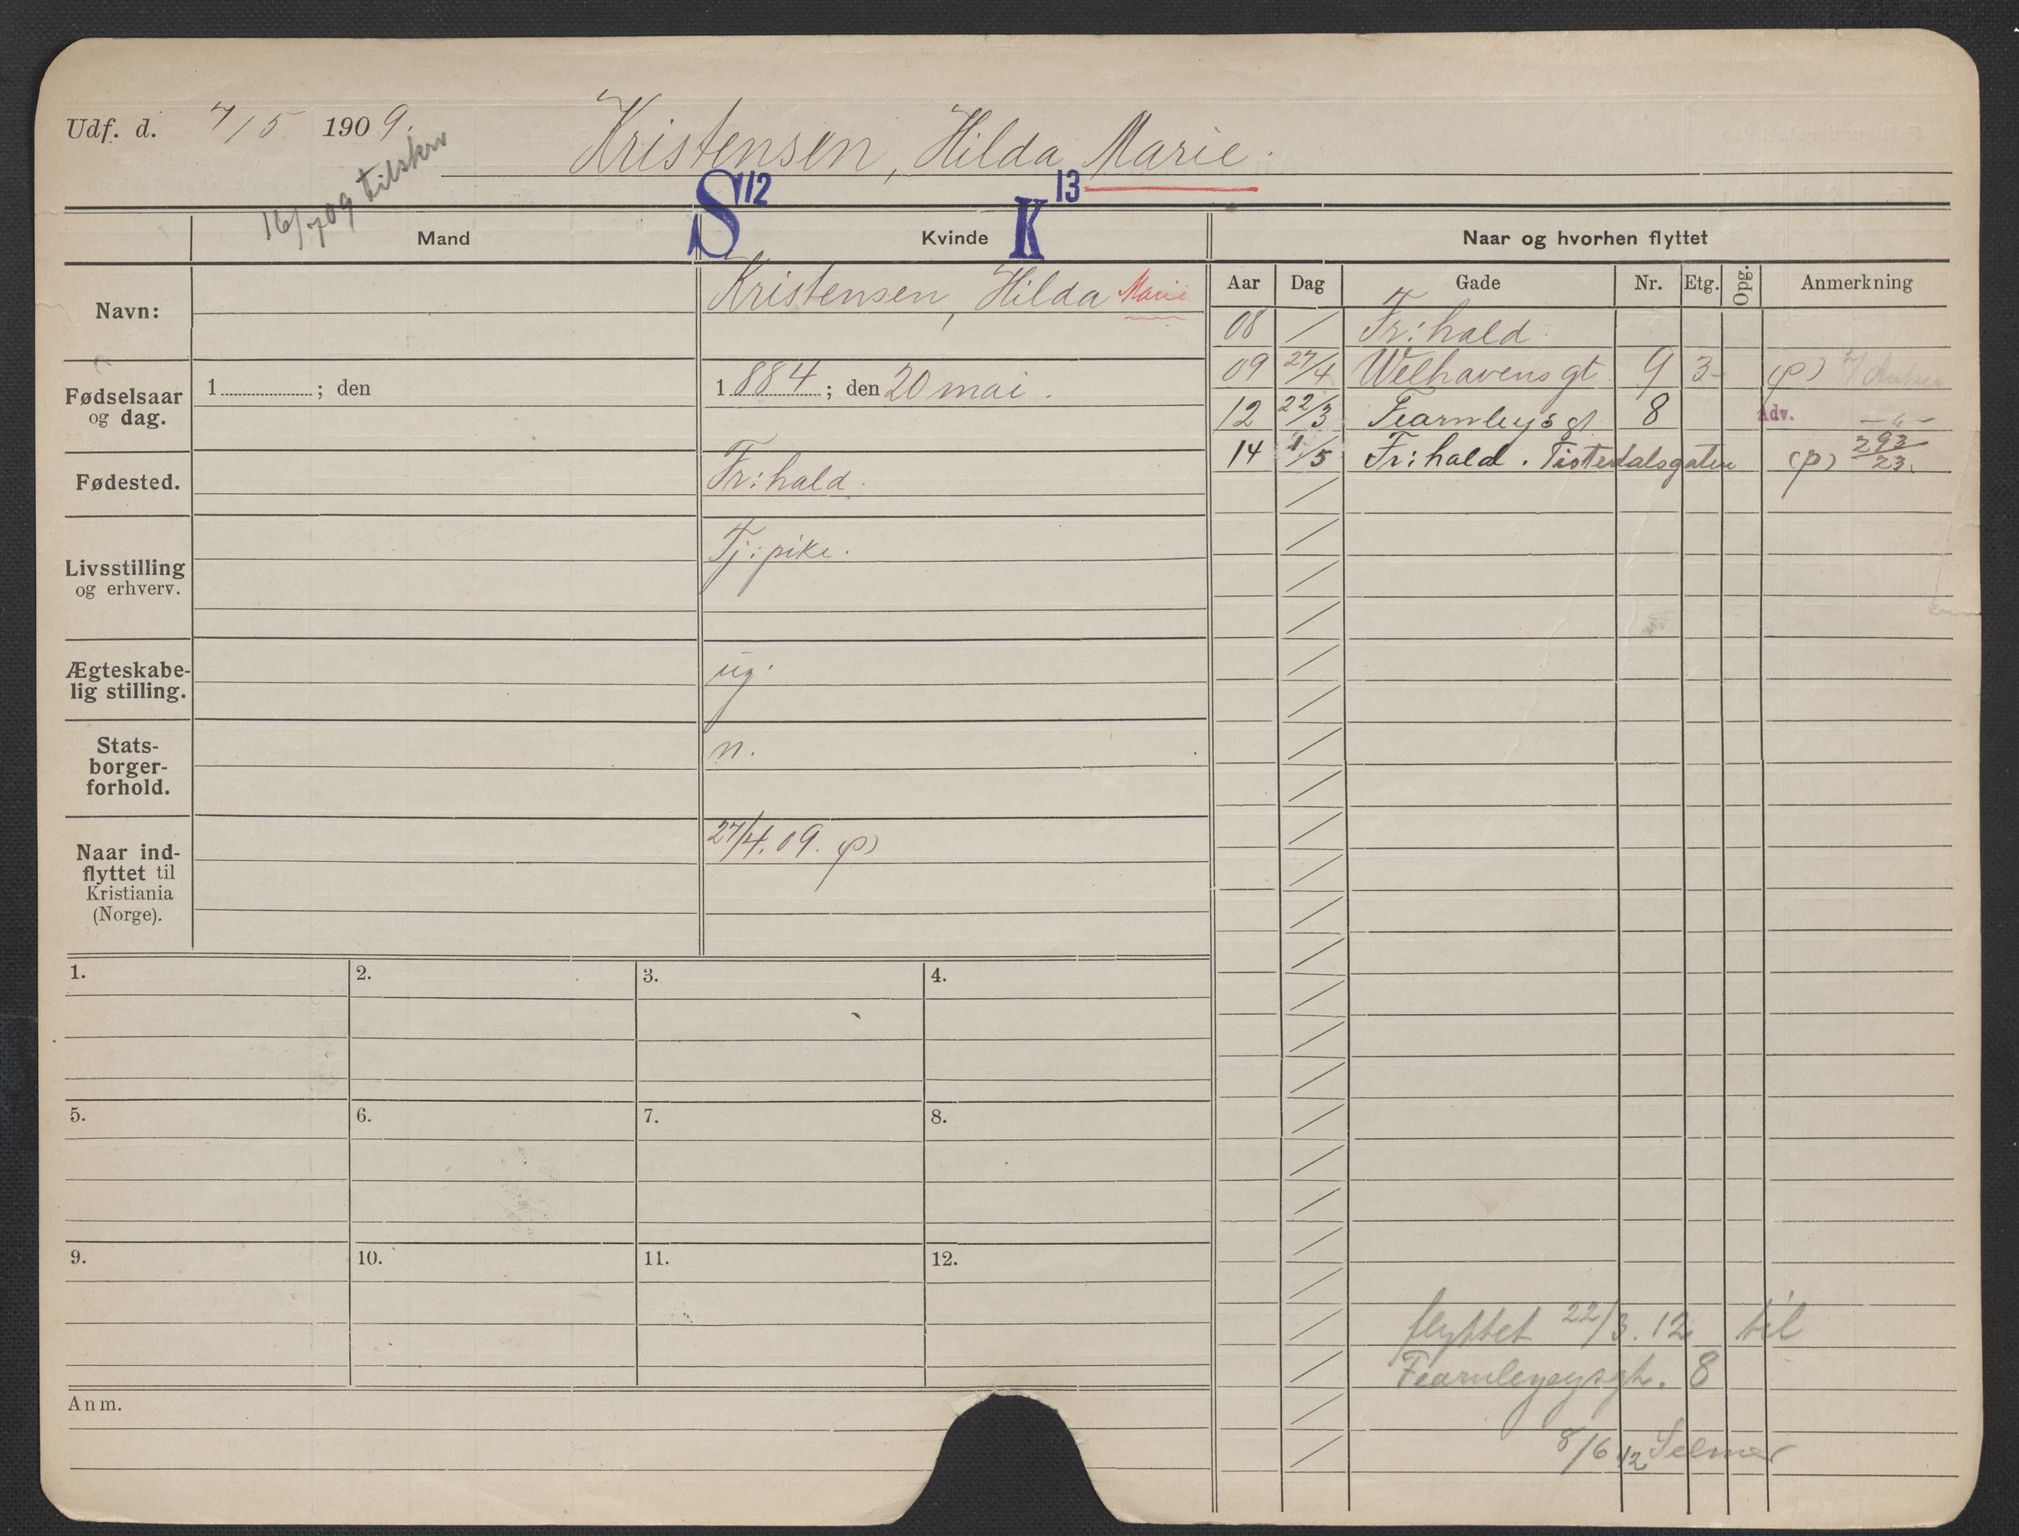 Udf. d. 7/5 1909.
Kristensen, Hilda Marie.
16/7 09 tilskr
S 12
K 13
Mand
Kvinde
Naar og hvorhen flyttet
Navn:
Kristensen, Hilda Marie
Aar Dag Gade Nr. Etg. Opg. Anmerkning
08 / Fr:hald.
09 27/4 Welhavens gt 9 3 (p)
12 22/3 Fearnleys gt 8 Adv. —„—
14 1/5 Fr:hald. Tistedalsgaten (p) 293/23.
Fødselsaar og dag.
1 ; den
1884 ; den 20 mai.
Fødested.
Fr:hald.
Livsstilling og erhverv.
Tj:pike.
Ægteskabe-
lig stilling.
ug.
Stats-
borger-
forhold.
n.
Naar ind-
flyttet til
Kristiania
(Norge).
27/4.09. (p)
1. 2. 3. 4.
5. 6. 7. 8.
9. 10. 11. 12.
Anm.
flyttet 22/3.12 til
Fearnleysgt. 8
8/6 12 Selmer